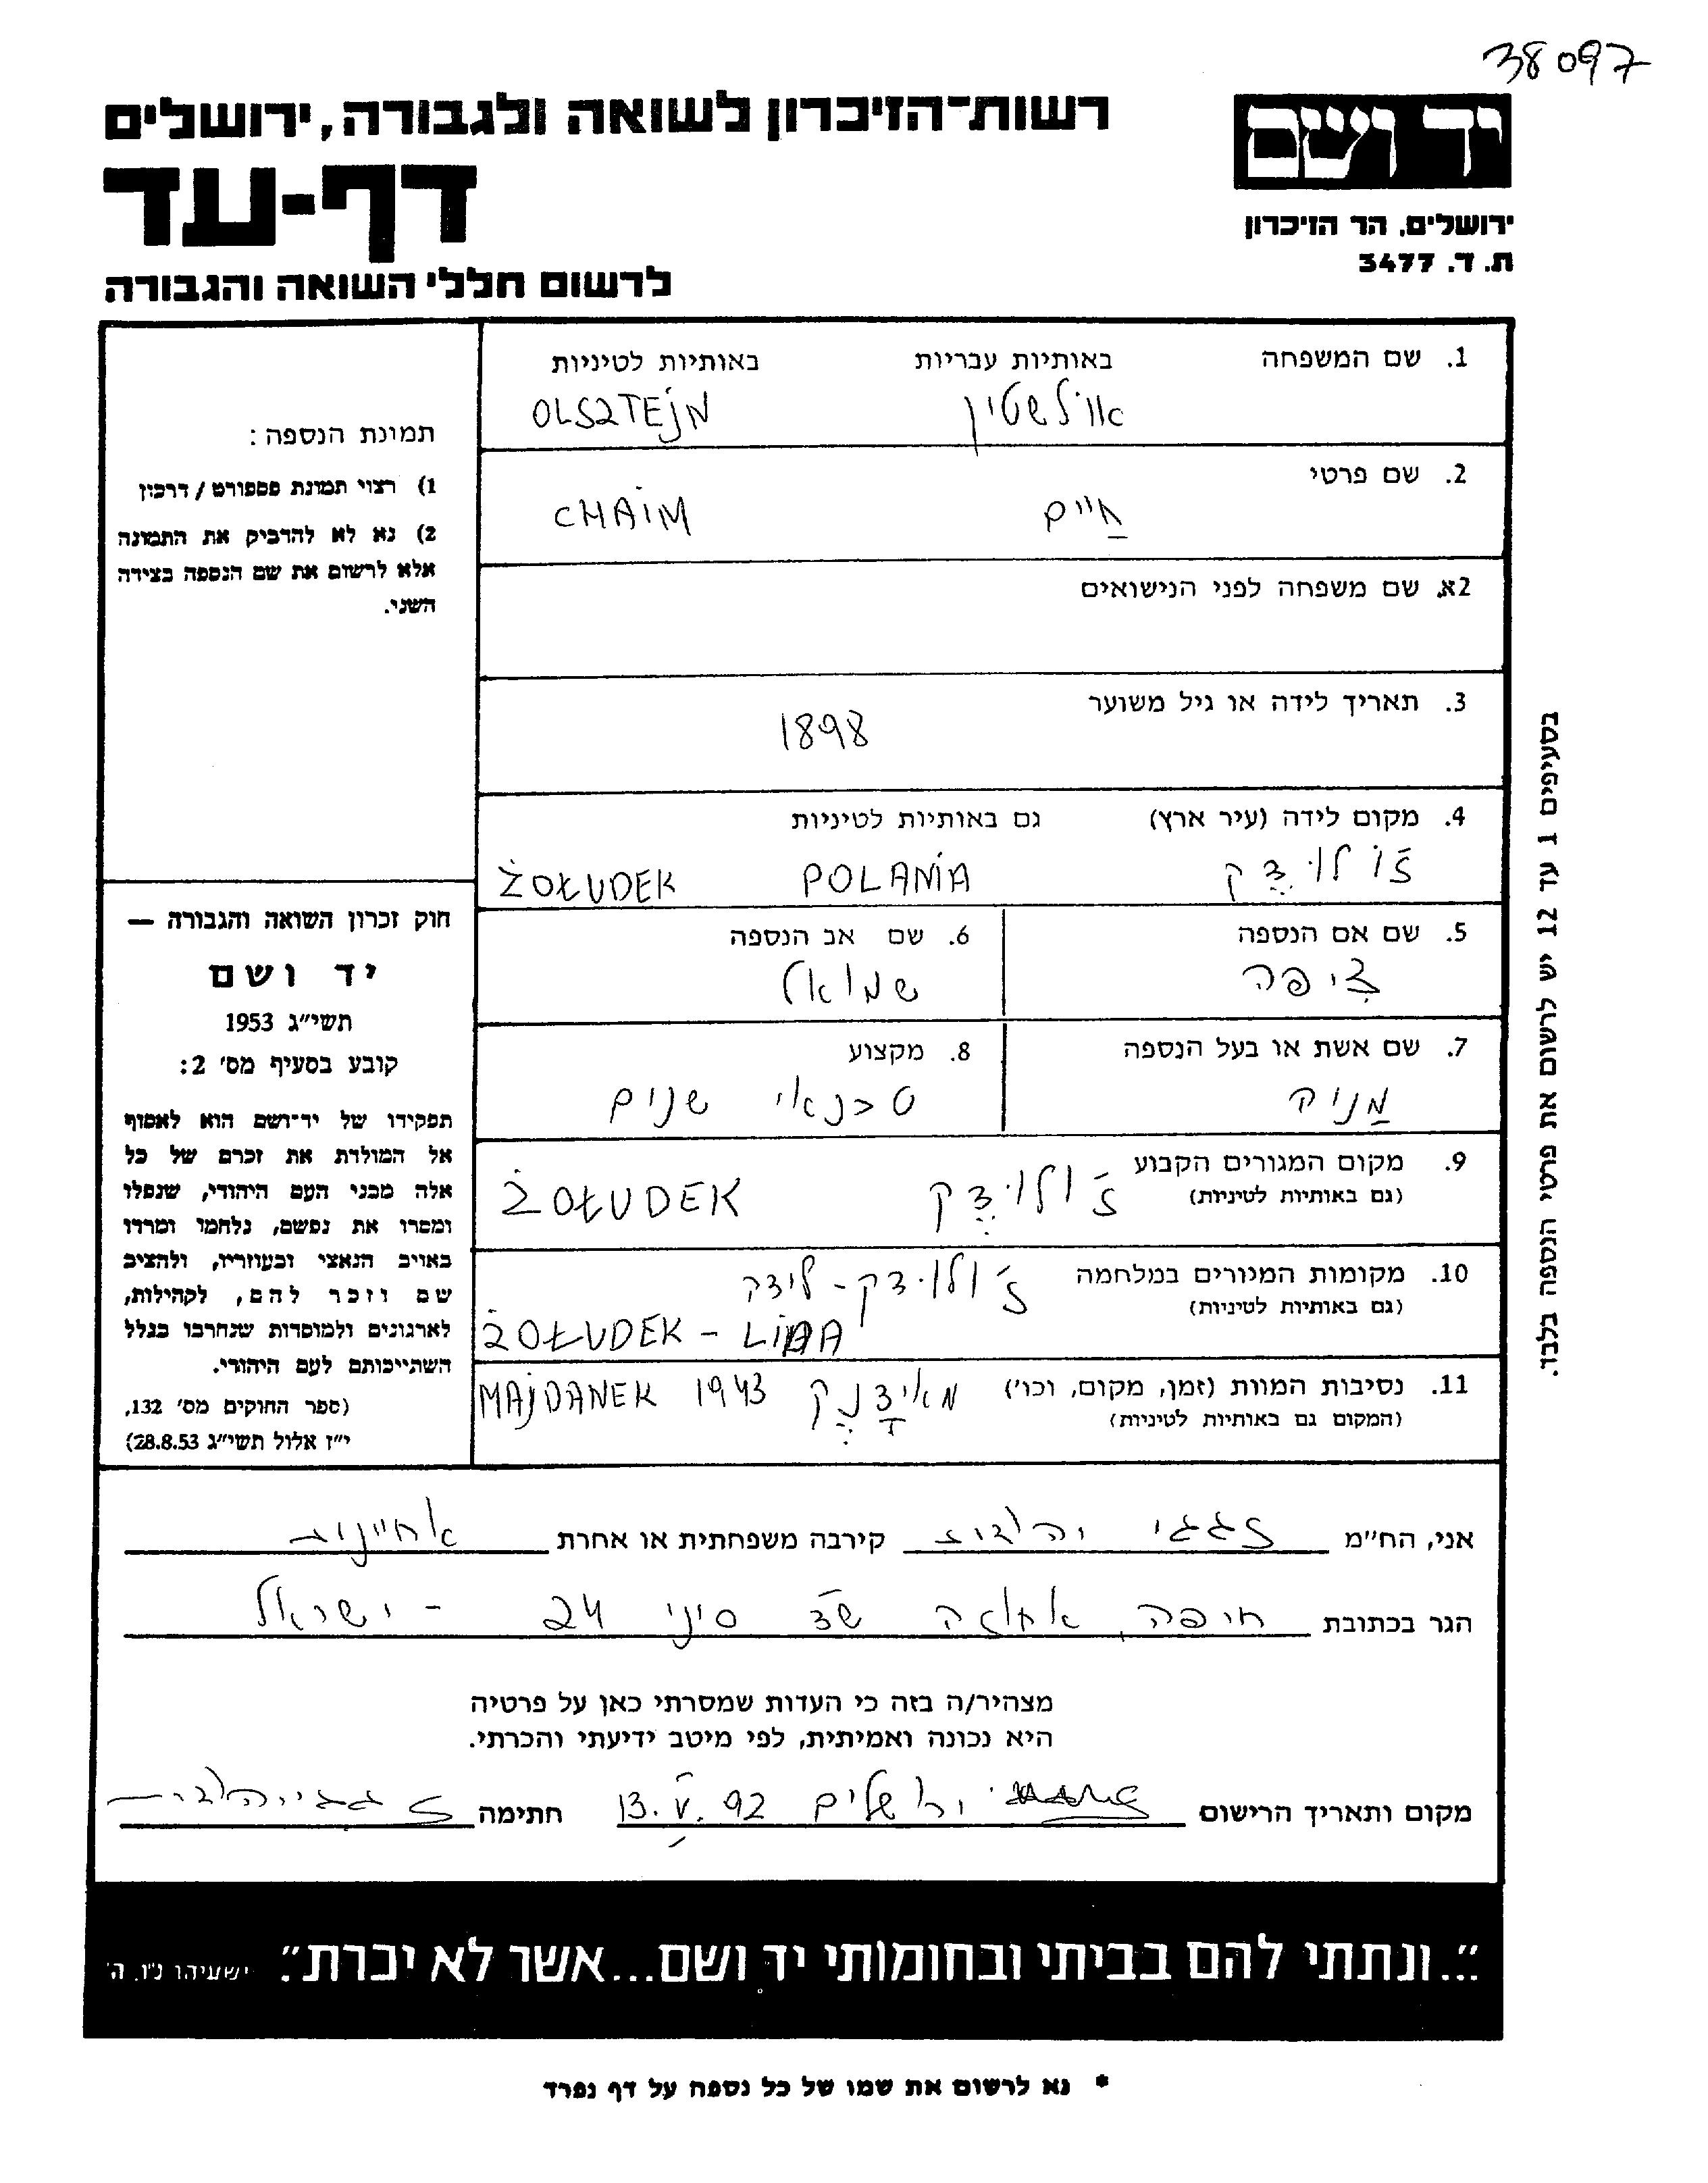 38097
רשות־הזיכרון לשואה ולגבורה, ירושלים
יד ושם
דף-עד
ירושלים. הר הזיכרון
ת. ד. 3477
לרשום חללי השואה והגבורה
1. שם המשפחה באותיות עבריות באותיות לטיניות
אולשטין OLSZTEJN
2. שם פרטי
חיים CHAIM
2א. שם משפחה לפני הנישואים
3. תאריך לידה או גיל משוער
1898
4. מקום לידה (עיר ארץ) גם באותיות לטיניות
ז'ולודק ŻOŁUDEK POLANIA
5. שם אם הנספה
ציפה
6. שם אב הנספה
שמואל
7. שם אשת או בעל הנספה
מניה
8. מקצוע
טכנאי שנים
9. מקום המגורים הקבוע
(גם באותיות לטיניות)
ז'ולודק ŻOŁUDEK
10. מקומות המגורים במלחמה
(גם באותיות לטיניות)
ז'ולודק - לידה
ŻOŁUDEK - LIDA
11. נסיבות המוות (זמן, מקום, וכו')
(המקום גם באותיות לטיניות)
מאידנק MAJDANEK 1943
תמונת הנספה:
1) רצוי תמונת פספורט / דרכון
2) נא לא להדביק את התמונה
אלא לרשום את שם הנספה בצידה
השני.
חוק זכרון השואה והגבורה —
יד ושם
תשי"ג 1953
קובע בסעיף מס' 2:
תפקידו של יד־ושם הוא לאסוף
אל המולדת את זכרם של כל
אלה מבני העם היהודי, שנפלו
ומסרו את נפשם, נלחמו ומרדו
באויב הנאצי ובעוזריו, ולהציב
שם וזכר להם, לקהילות,
לארגונים ולמוסדות שנחרבו בגלל
השתייכותם לעם היהודי.
(ספר החוקים מס' 132,
י"ז אלול תשי"ג 28.8.53)
בסעיפים 1 עד 12 יש לרשום את פרטי הנספה בלבד.
אני, החח"מ זגגי יהודית קירבה משפחתית או אחרת אחיינית
הגר בכתובת חיפה, אחוזה שד סיני 24 - ישראל
מצהיר/ה בזה כי העדות שמסרתי כאן על פרטיה
היא נכונה ואמיתית, לפי מיטב ידיעתי והכרתי.
מקום ותאריך הרישום ירושלים 13.V.92 חתימה זגגי יהודית
"...ונתתי להם בביתי ובחומותי יד ושם...אשר לא יכרת". ישעיהו נ"ו. ה'
* נא לרשום את שמו של כל נספה על דף נפרד